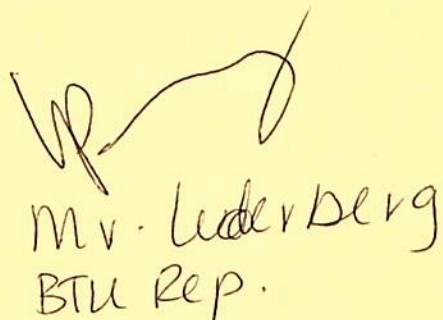 Mr. Lederberg
BTU Rep.